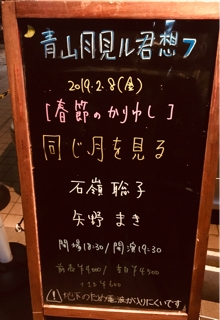 青山月見ル君想フ
2019.2.8(金)
[春節のかりゆし]
同じ月を見る
石嶺聡子
矢野まき
開場18:30/開演19:30
前売¥4000/当日¥4500
+1D ¥600
地下のため電波が入りにくいです